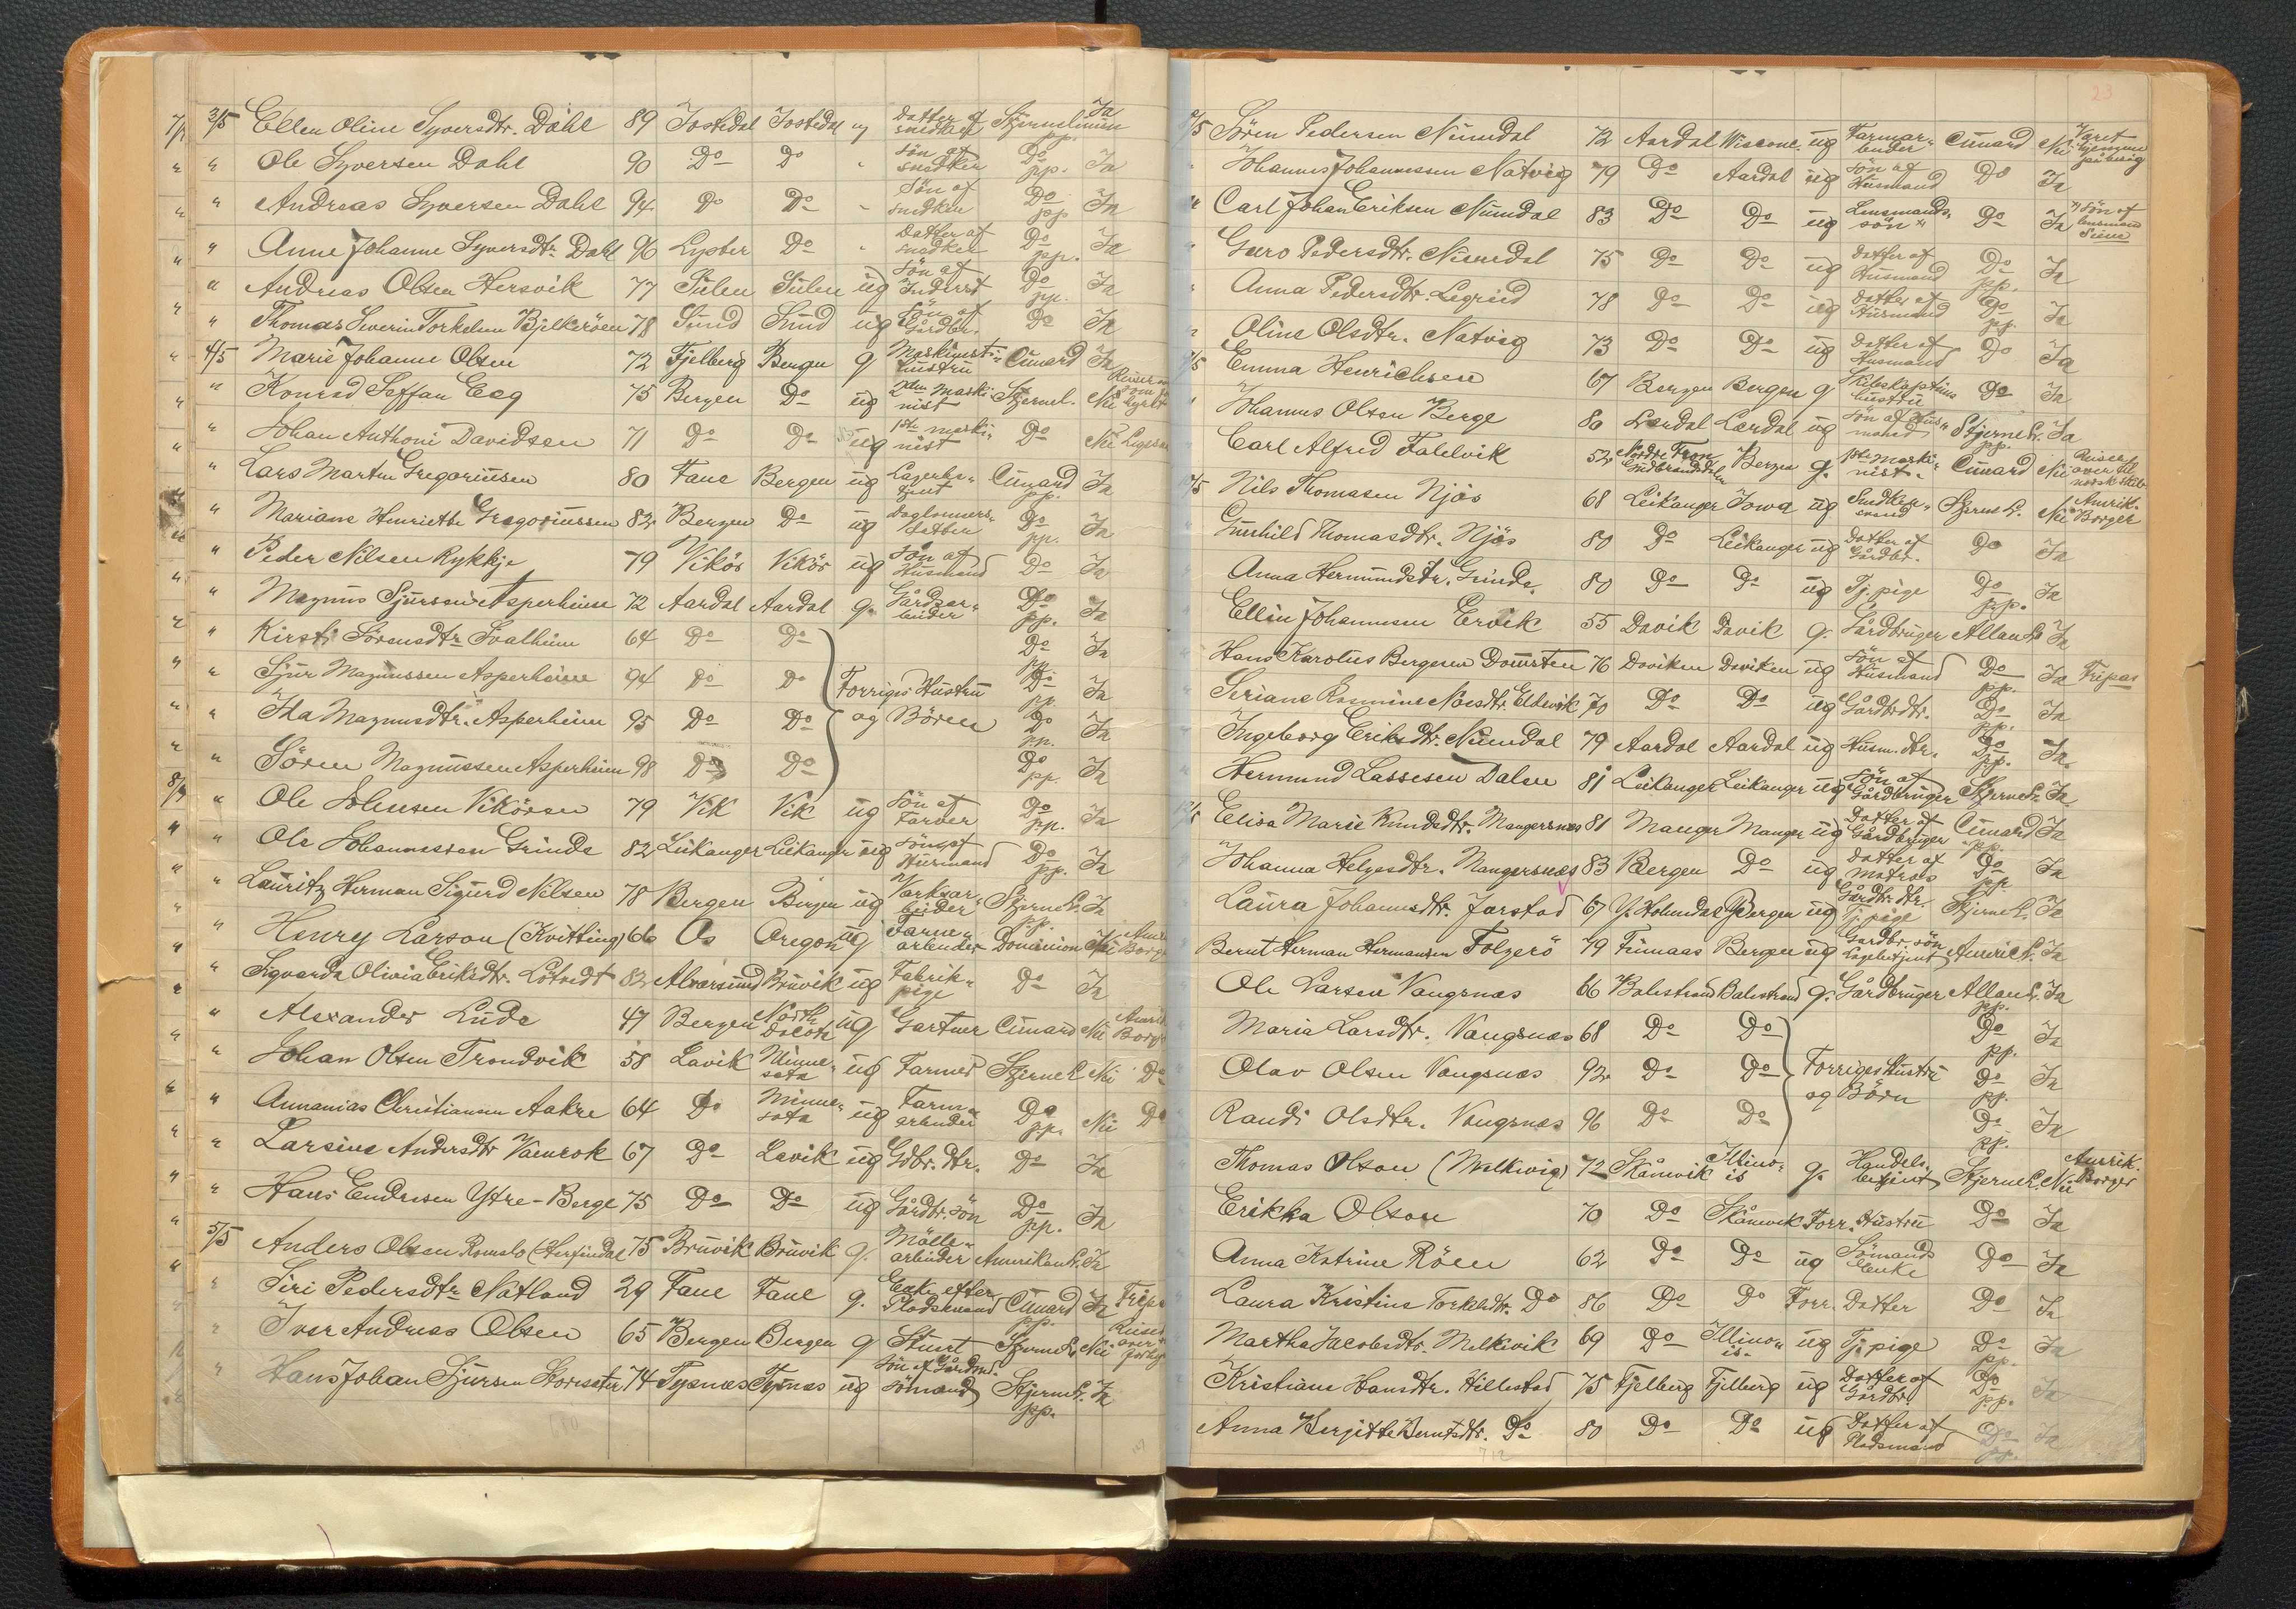 3/5 Ellen Oline Syversdtr. Dahl 89 Jostedal Jostedal ug Datter af snedker Stjernelinien pp. Ja
" Ole Syversen Dahl 90 Do Do " Sön af snedker Do pp. Ja
" Andreas Syversen Dahl 94 Do Do " Sön af snedker Do pp Ja
" Anne Johanne Syversdtr. Dahl 96 Lyster Do " Datter af snedker Do pp. Ja
" Andreas Olsen Hersvik 77 Sulen Sulen ug Sön af Inderst Do pp. Ja
" Thomas Severin Torkelsen Bjelkeröen 78 Sund Sund ug Sön af Gårdbr. Do Ja
4/5 Marie Johanne Olsen 72 Fjelberg Bergen g Maskinist- hustru Cunard Ja
" Konrad Seffan Eeg 75 Bergen Do ug 2den Maski nist Stjernel. Nei
" Johan Anthoni Davidsen 71 Do Do ug 1ste maski- nist Do Nei
" Lars Martin Gregoriussen 80 Fane Bergen ug Cunard pp. Ja
" Mariane Henriette Gregoriussen 82 Bergen Do ug Daglonners- datter Do pp. Ja
" Peder Nilsen Rykkje 79 Vikör Vikör ug Sön af Husmand Do Ja
" Magnus Sjursen Asperheim 72 Aardal Aardal g. Gårdsar- beider Do pp. Ja
" Kirsti Sörensdtr. Svalheim 64 Do Do Do pp. Ja
" Sjur Magnussen Asperheim 94 Do Do Forriges Hustru Do pp. Ja
" Ida Magnusdtr. Asperheim 95 Do Do og Börn Do pp. Ja
" Sören Magnussen Asperheim 98 Do Do Do pp. Ja
" Ole Johnsen Vikören 79 Vik Vik ug Sön af Farver Do pp. Ja
" Ole Johannessen Grinde 82 Leikanger Leikanger ug Sön af Husmand Do pp. Ja
" Lauritz Herman Sigurd Nilsen 78 Bergen Bergen ug Værksar- beider Stjernel. pp. Ja
" Henry Larson (Kvitting) 66 Os Oregon ug Farm- arbeider Dominion Nei
" Sigvarda Olivia Eriksdtr. 82 Alversund Bruvik ug Fabrik- pige Do Ja
" Alexander Lude 47 Bergen North Dacota ug Gartner Cunard Nei
" Johan Olsen Trondvik 58 Lavik Minne- sota ug Farmer Stjernel Nei Do
" Annanias Christiansen Aakre 64 Do Minne- sota ug Farm- arbeider Do pp. Nei Do
" Larsine Andersdtr 67 Do Lavik ug Gdbr. dtr. Do Ja
" Hans Endresen Ytre-Berge 75 Do Do ug Gårdbr. sön Do pp. Ja
5/5 Anders Olsen Romslo (Herfindal 75 Bruvik Bruvik g. Mölle- arbeider Amerikanl. Ja
" Siri Pedersdtr. Natland 29 Fane Fane g. Enke efter Pladsmand Cunard pp. Ja
" Iver Andreas Olsen 65 Bergen Bergen g Stuert Stjernel. Nei
" Hans Johan Sjursen 74 Tysnæs Tysnæs ug Sön af Gårdmd. sömand Stjernel. pp. Ja
23
Sören Pedersen Nundal 72 Aardal Wisconc. ug Farmar- beider Cunard Nei Været hjemme paa besög
" Johannes Johannesen Natvig 79 Do Aardal ug Sön af Husmand Do Ja
" Carl Johan Eriksen Nundal 83 Do Do ug Lensmands- sön Do Ja
" Guro Pedersdtr. Nundal 75 Do Do ug Datter af Husmand Do pp. Ja
" Anna Pedersdtr. Legreid 78 Do Do ug Datter af Husmand Do pp. Ja
" Oline Olsdtr. Natvig 73 Do Do ug Datter af Husmand Do Ja
Emma Henrichsen 67 Bergen Bergen g Skibskaptins hustru Do Ja
" Johannes Olsen Berge 80 Lærdal Lærdal ug Sön af Hus- mand Stjernel. pp. Ja
Carl Alfred Falelvik 52 Nordre Fron Gudbrandsdalen Bergen g. 1ste Maski- nist. Cunard Nei Reiser over til norsk skib
Nils Thomasen Njös 68 Leikanger Iowa ug Snedker- svend Stjernel. Nei Amrik. Borger
Gunhild Thomasdtr. Njös 80 Do Leikanger ug Datter af Gårdbr. Do Ja
Anna Hermundsdtr. Grinde. 80 Do Do ug Tj. pige Do pp. Ja
Ellin Johannesen Ervik 55 Davik Davik g. Gårdbruger Allanl. Ja
Hans Karolus Bergesen 76 Daviken Daviken ug Sön af Husmand Do pp. Ja Fripas
Seriane 70 Do Do ug Gårdbr.dtr. Do pp. Ja
Ingeborg Eriksdtr. Nundal 79 Aardal Aardal ug Husm. dtr. Do pp. Ja
Hermund Lassesen Dalen 81 Leikanger Leikanger ug Sön af Gårdbruger Stjernel. Ja
Elisa Marie Knudsdtr. Mangersnæs 81 Manger Manger ug Datter af Gårdbruger Cunard pp. Ja
Johanna Helgesdtr. Mangersnæs 83 Bergen Do ug Datter af matros Do pp. Ja
Laura Johannesdtr. Jarstad 67 Y. Holmedal Bergen ug Gårdbr. dtr. Tj. pige Stjernel. Ja
Bernt Herman Hermansen Folgerö 79 Finnaas Bergen ug Gårdbr. sön Ja
Ole Larsen Vangsnæs 66 Balestrand Balestrand g. Gårdbruger Allanl. pp. Ja
Maria Larsdtr. Vangsnæs 68 Do Do Do pp. Ja
Olav Olsen Vangsnæs 92 Do Do Forriges Hustru og Börn Do pp. Ja
Randi Olsdtr. Vangsnæs 96 Do Do Do pp. Ja
Thomas Olson (Melkivig) 72 Skånevik Illino- is g. Handels- betjent Stjernel. Nei Amrik. Borger
Erikka Olson 70 Do Skånevik Forr. Hustru Do Ja
Anna Katrine Röen 62 Do Do ug Sömands Enke Do Ja
Laura Kristine Torkelsdtr. Do 86 Do Do Forr. Datter Do Ja
Martha Jacobsdtr. Melkivik 69 Do Illino- is- ug Tj. pige Do pp. Ja
Kristiane Hansdtr. Hillestad 75 Fjelberg Fjelberg ug Datter af Gårdbr. Do pp. Ja
Anna Berjitte Berntsdtr. Do 80 Do Do ug Datter af Pladsmand Do pp. Ja